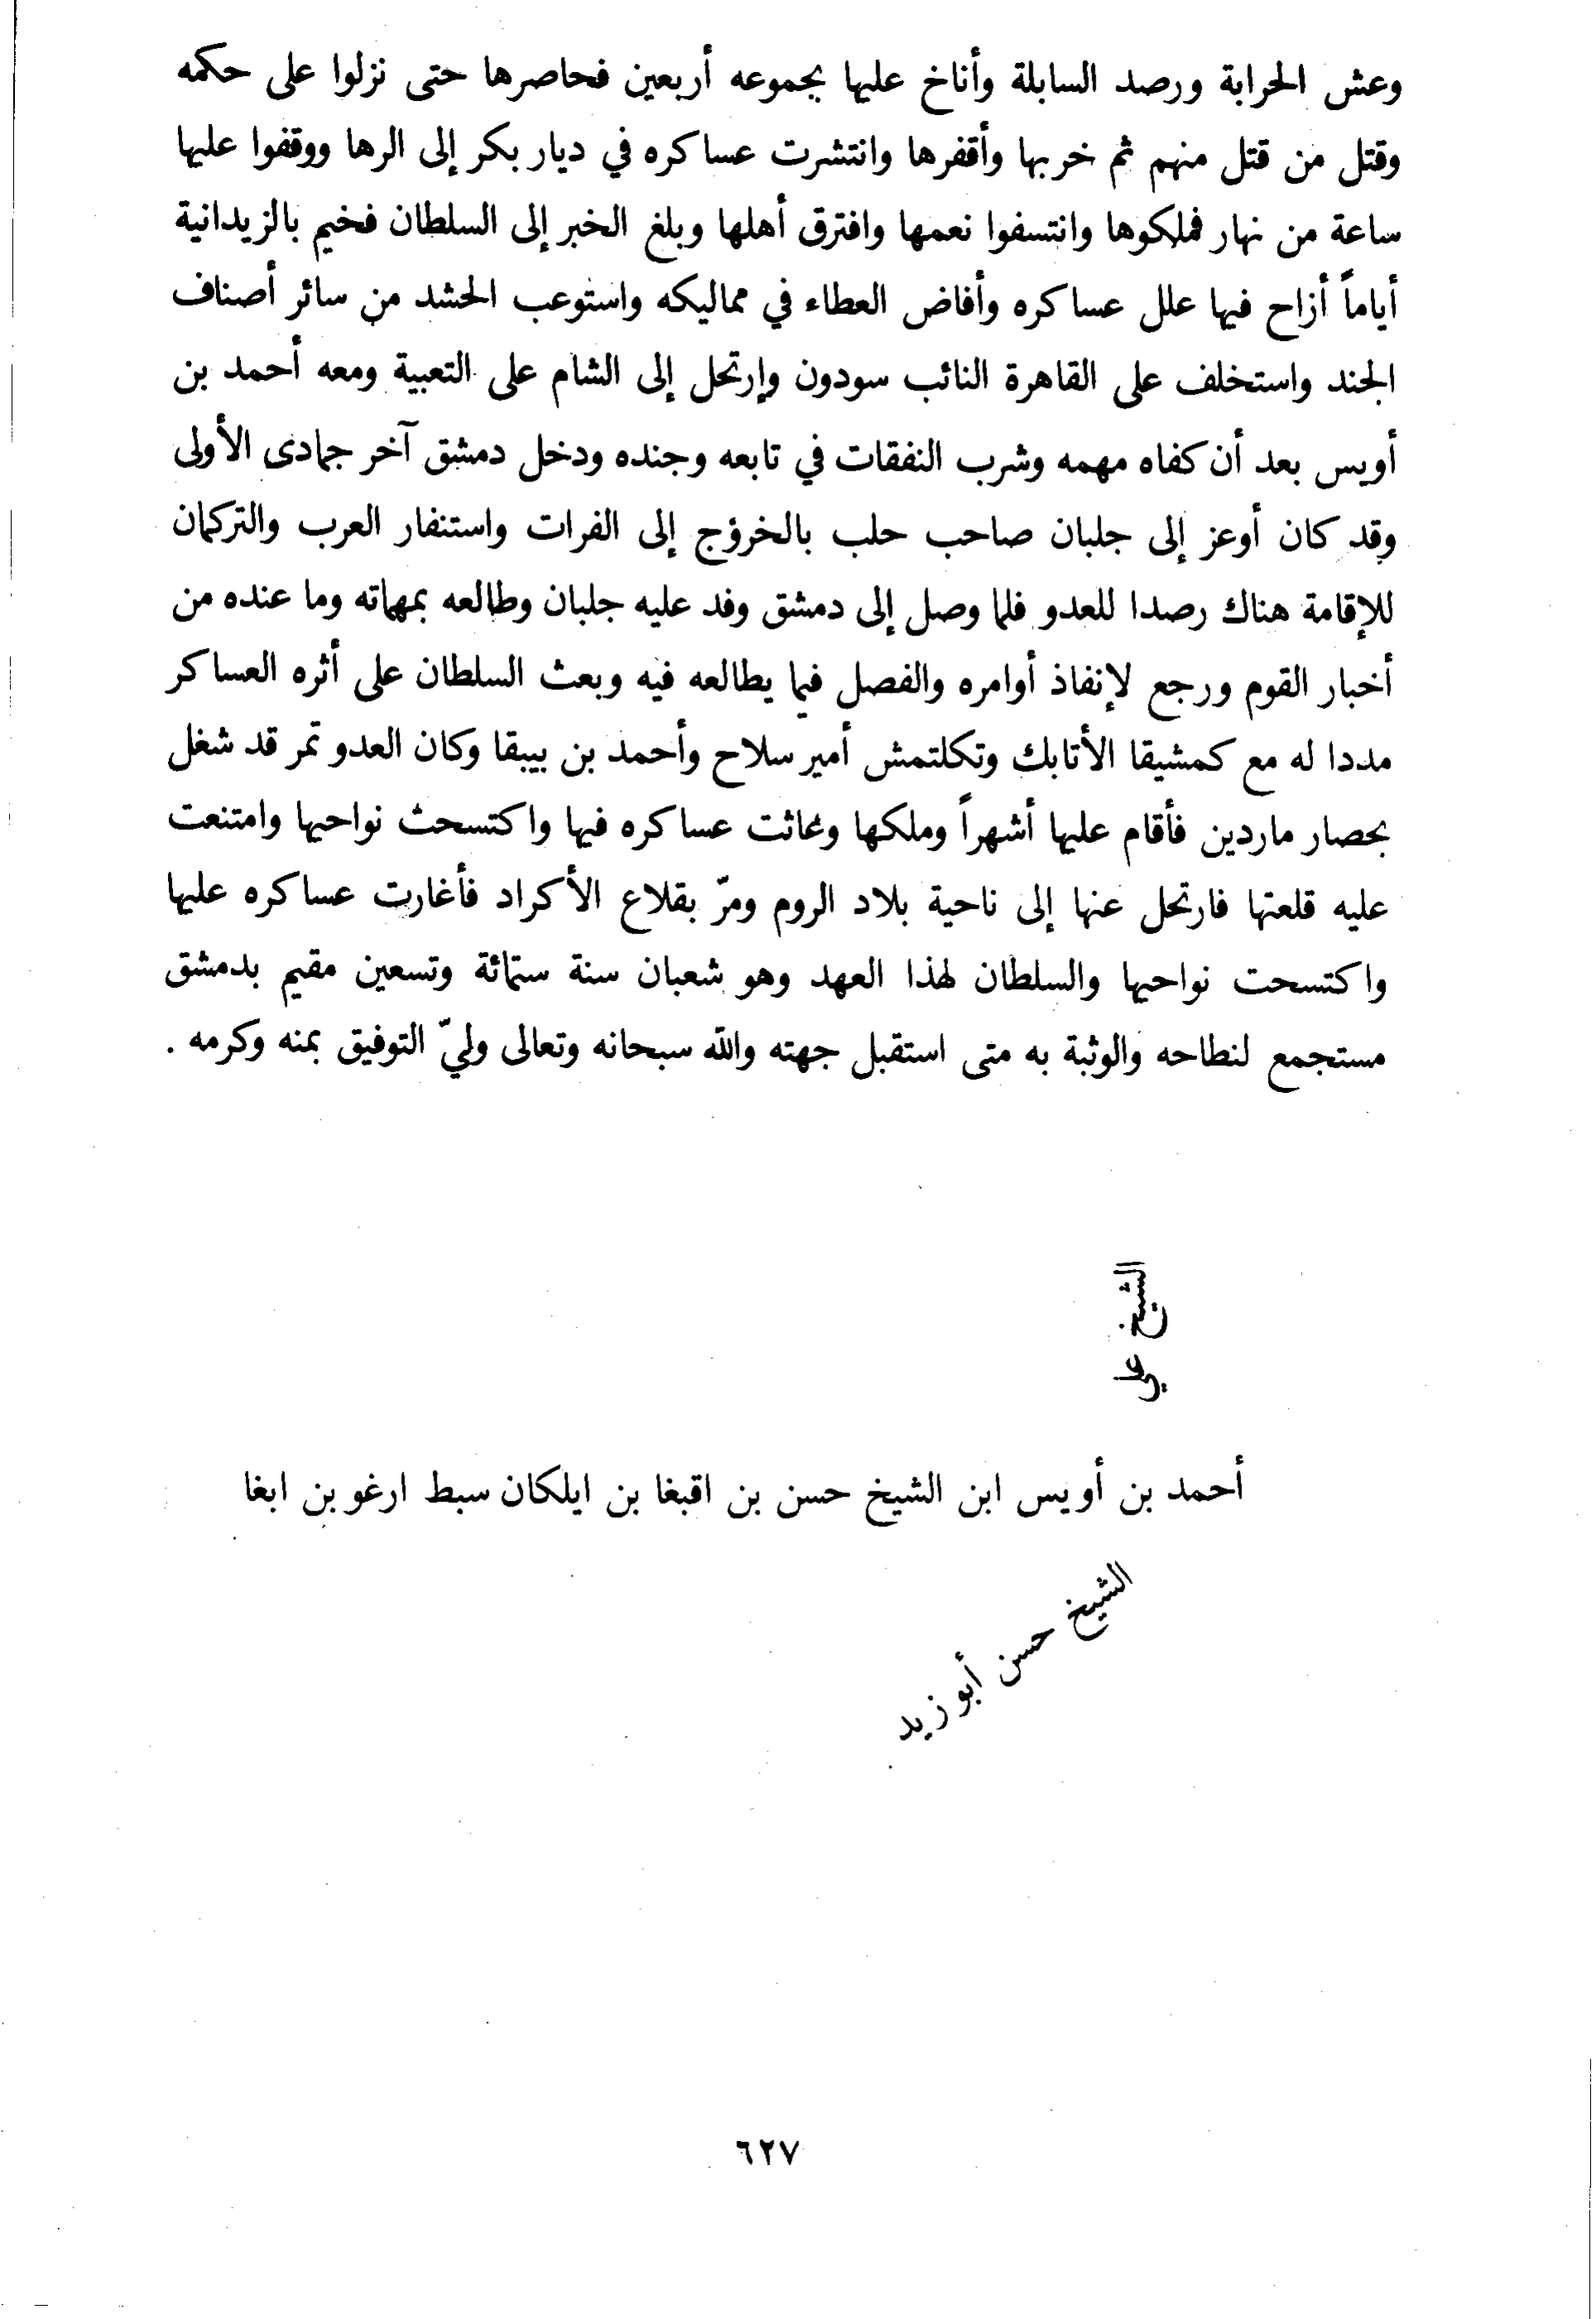 وعش الحرابة ورصد السابلة وأناخ عليها بجموعه أربعين فحاصرها حتى نزلوا على حكمه
وقتل من قتل منهم ثم خربها وأقفرها وانتشرت عساكره في ديار بكر إلى الرها ووقفوا عليها
ساعة من نهار فملكوها وانتسفوا نعمها وافترق أهلها وبلغ الخبر إلى السلطان فخيم بالزيدانية
أياماً أزاح فيها علل عساكره وأفاض العطاء في مماليكه واستوعب الحشد من سائر أصناف
الجند واستخلف على القاهرة النائب سودون وإرتحل إلى الشام على التعبية ومعه أحمد بن
أويس بعد أن كفاه مهمه وشرب النفقات في تابعه وجنده ودخل دمشق آخر جمادى الأولى
وقد كان أوعز إلى جلبان صاحب حلب بالخرؤج إلى الفرات واستنفار العرب والتركمان
للإقامة هناك رصدا للعدو فلما وصل إلى دمشق وفد عليه جلبان وطالعه بمهماته وما عنده من
أخبار القوم ورجع لإنفاذ أوامره والفصل فيما يطالعه فيه وبعث السلطان على أثره العساكر
مددا له مع كمشيقا الأتابك وتكلتمش أمير سلاح وأحمد بن بيبقا وكان العدو تمر قد شغل
بحصار ماردين فأقام عليها أشهراً وملكها وعاثت عساكره فيها واكتسحث نواحيها وامتنعت
عليه قلعتها فارتحل عنها إلى ناحية بلاد الروم ومرّ بقلاع الأكراد فأغارت عساكره عليها
واكتسحت نواحيها والسلطان لهذا العهد وهو شعبان سنة ستمائة وتسعين مقيم بدمشق
مستجمع لنطاحه والوثبة به متى استقبل جهته والله سبحانه وتعالى وليّ التوفيق بمنه وكرمه .
الشيخ علي
أحمد بن أويس ابن الشيخ حسن بن اقبغا بن ايلكان سبط ارغو بن ابغا
الشيخ حسن أبو زيد
٦٢٧